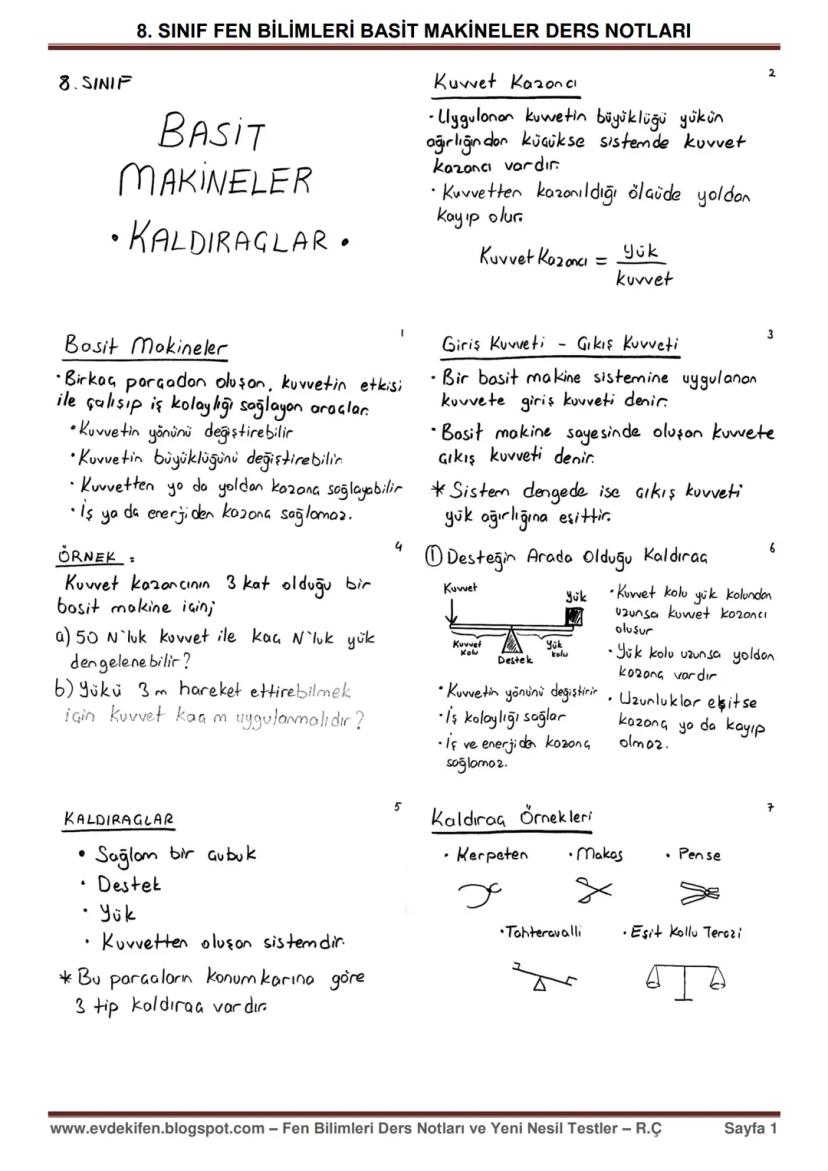 8. SINIF FEN BİLİMLERİ BASİT MAKİNELER DERS NOTLARI
8. SINIF
BASİT
MAKİNELER
• KALDIRAÇLAR •
1
Basit Makineler
• Birkaç parçadan oluşan, kuvvetin etkisi
ile çalışıp iş kolaylığı sağlayan araçlar.
• Kuvvetin yönünü değiştirebilir
• Kuvvetin büyüklüğünü değiştirebilir.
• Kuvvetten ya da yoldan kazanç sağlayabilir
• İş ya da enerjiden kazanç sağlamaz.
2
Kuvvet Kazancı
• Uygulanan kuvvetin büyüklüğü yükün
ağırlığından küçükse sistemde kuvvet
kazancı vardır.
• Kuvvetten kazanıldığı ölçüde yoldan
kayıp olur.
Kuvvet Kazancı = Yük
kuvvet
3
Giriş Kuvveti - Çıkış Kuvveti
• Bir basit makine sistemine uygulanan
kuvvete giriş kuvveti denir.
• Basit makine sayesinde oluşan kuvvete
çıkış kuvveti denir.
* Sistem dengede ise çıkış kuvveti
yük ağırlığına eşittir.
4
ÖRNEK :
Kuvvet kazancının 3 kat olduğu bir
basit makine için;
a) 50 N'luk kuvvet ile kaç N'luk yük
dengelenebilir?
b) Yükü 3 m hareket ettirebilmek
için kuvvet kaç m uygulanmalıdır?
5
KALDIRAÇLAR
• Sağlam bir çubuk
• Destek
• Yük
• Kuvvetten oluşan sistemdir.
* Bu parçaların konumkarına göre
3 tip kaldıraç vardır.
6
① Desteğin Arada Olduğu Kaldıraç
Kuvvet
Yük
Kuvvet
Kolu
Destek
Yük
kolu
• Kuvvetin yönünü değiştirir
• İş kolaylığı sağlar
• İş ve enerjiden kazanç
sağlamaz.
• Kuvvet kolu yük kolundan
uzunsa kuvvet kazancı
oluşur
• Yük kolu uzunsa yoldan
kazanç vardır
• Uzunluklar eşitse
kazanç ya da kayıp
olmaz.
7
Kaldıraç Örnekleri
• Kerpeten • Makas • Pense
• Tahteravalli • Eşit Kollu Terazi
www.evdekifen.blogspot.com – Fen Bilimleri Ders Notları ve Yeni Nesil Testler – R.Ç Sayfa 1